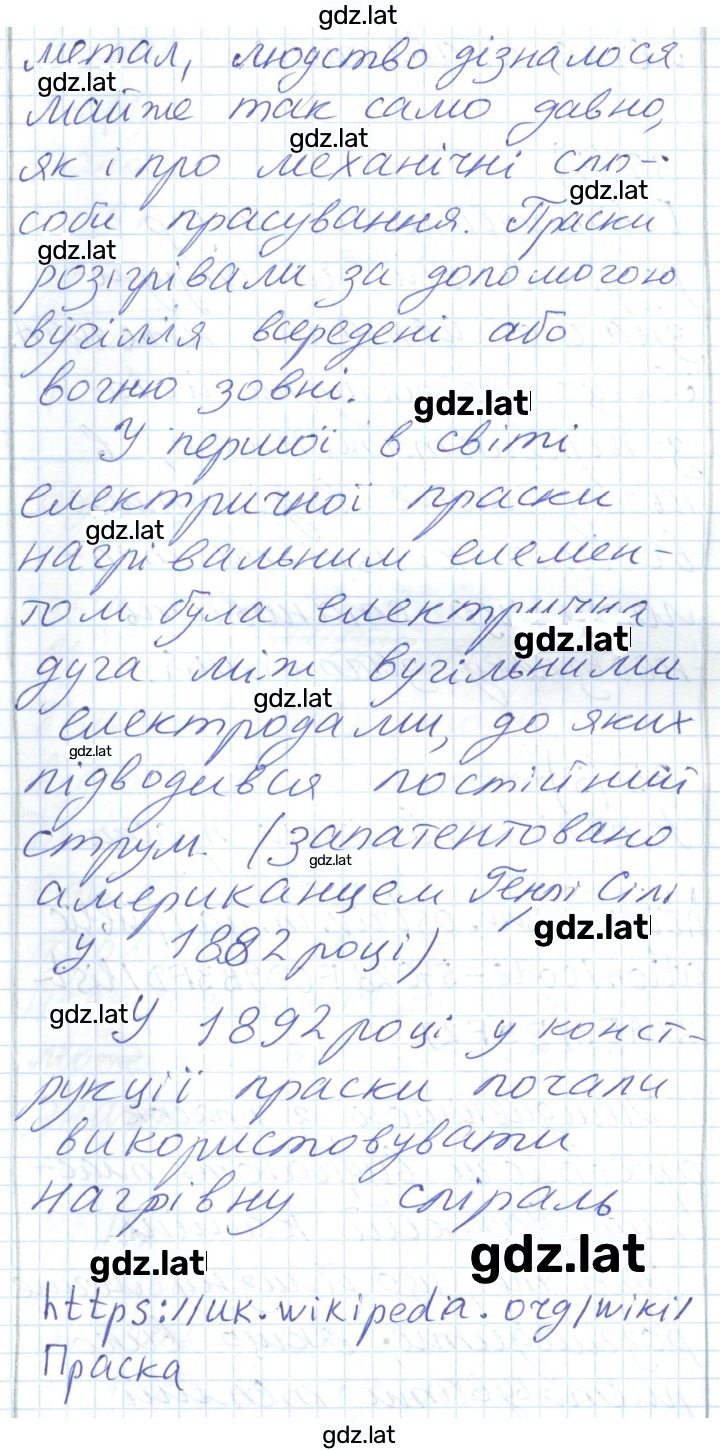 gdz.lat
метал, людство дізналося
gdz.lat
майже так само давно,
gdz.lat
як і про механічні спо-
gdz.lat
соби прасування. Праски
gdz.lat
розігрівали за допомогою
вугілля всередені або
вогню зовні.
gdz.lat
У першої в світі
електричної праски
gdz.lat
нагрівальним елемен-
том була електрична
gdz.lat
дуга між вугільними
gdz.lat
електродами, до яких
gdz.lat
підводився постійний
струм. (запатентовано
gdz.lat
американцем Генрі Сілі
gdz.lat
у 1882 році)
gdz.lat
У 1892 році у конст-
рукції праски почали
використовувати
нагрівну спіраль
gdz.lat
gdz.lat
https://uk.wikipedia.org/wiki/
Праска
gdz.lat